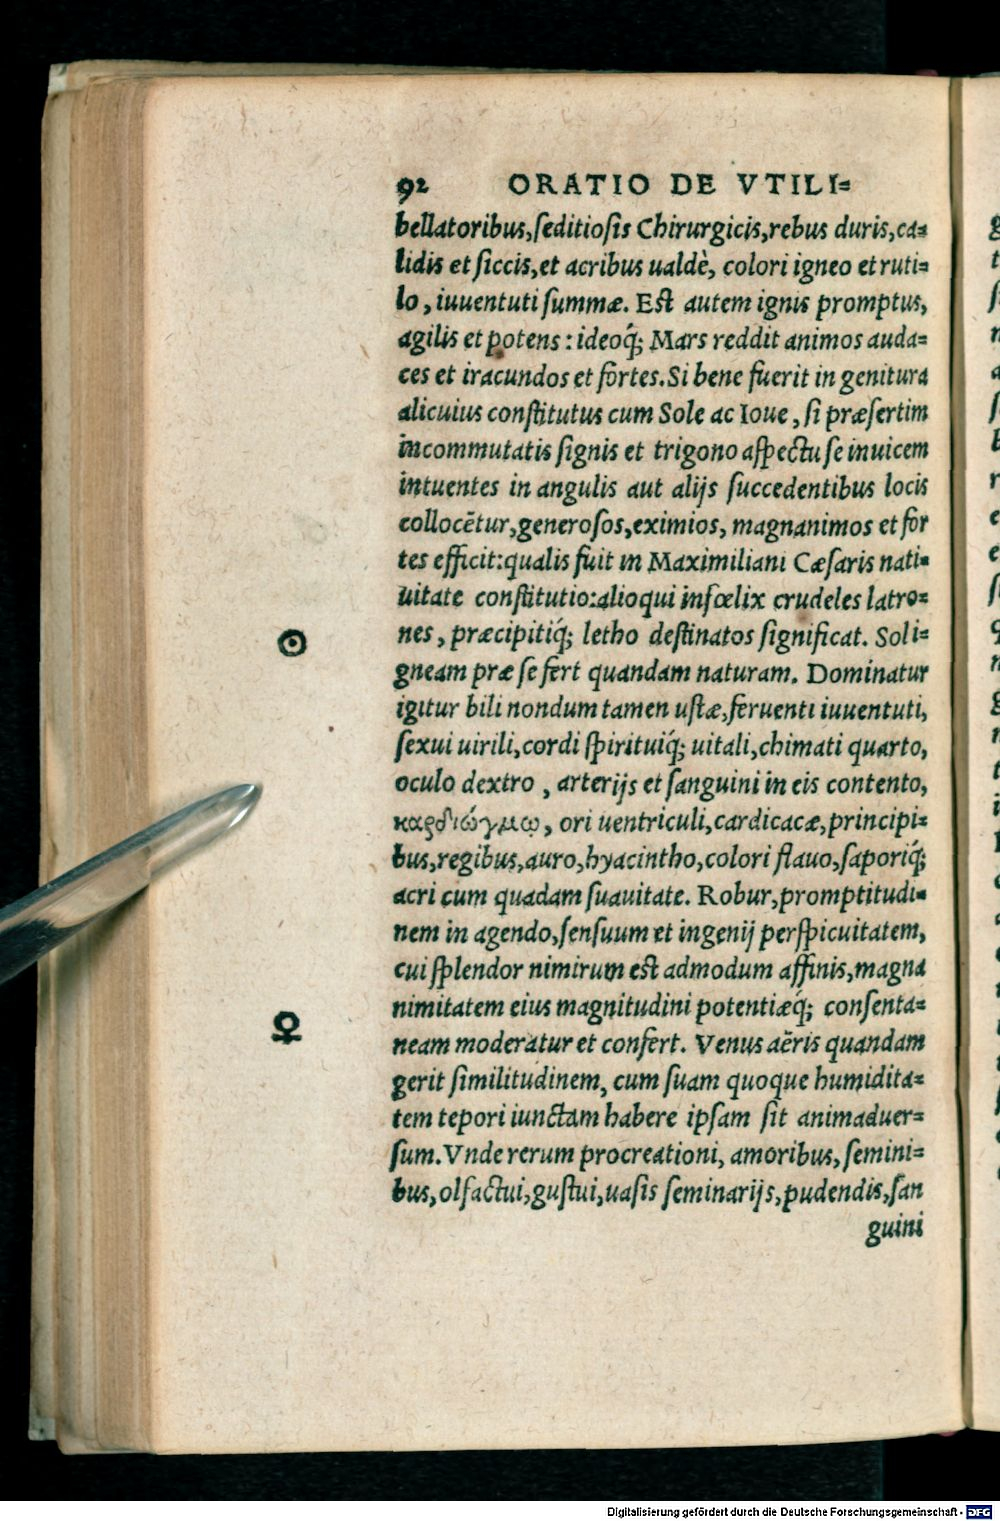 92 ORATIO DE VTILI=
bellatoribus, seditiosis Chirurgicis, rebus duris, ca=
lidis et siccis, et acribus ualdè, colori igneo et ruti=
lo, iuuentuti summæ. Est autem ignis promptus,
agilis et potens: ideoq́; Mars reddit animos auda=
ces et iracundos et fortes. Si bene fuerit in genitura
alicuius constitutus cum Sole ac Ioue, si præsertim
incommutatis signis et trigono aspectu se inuicem
intuentes in angulis aut alijs succedentibus locis
collocẽtur, generosos, eximios, magnanimos et for
tes efficit: qualis fuit in Maximiliani Cæsaris nati=
uitate constitutio: alioqui infœlix crudeles latro=
nes, præcipitiq́; letho destinatos significat. Sol i=
☉
gneam præ se fert quandam naturam. Dominatur
igitur bili nondum tamen ustæ, feruenti iuuentuti,
sexui uirili, cordi spirituiq́; uitali, chimati quarto,
oculo dextro, arterijs et sanguini in eis contento,
καρδιώγμῳ, ori uentriculi, cardicacæ, principi=
bus, regibus, auro, hyacintho, colori flauo, saporiq́;
acri cum quadam suauitate. Robur, promptitudi=
nem in agendo, sensuum et ingenij perspicuitatem,
cui splendor nimirum est admodum affinis, magna
nimitatem eius magnitudini potentiæq́; consenta=
♀
neam moderatur et confert. Venus aëris quandam
gerit similitudinem, cum suam quoque humidita=
tem tepori iunctam habere ipsam sit animaduer=
sum. Vnde rerum procreationi, amoribus, semini=
bus, olfactui, gustui, uasis seminarijs, pudendis, san
guini
Digitalisierung gefördert durch die Deutsche Forschungsgemeinschaft - DFG